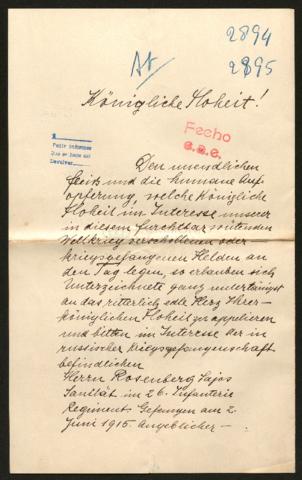 2894
2895
At
Königliche Hoheit!
Fecho
Pedir informes
Que se haga así
Devolver
Den unendlichen
Fleiß und die humane Auf-
opferung, welche Königliche
Hoheit im Interesse unserer
in diesem furchtbar wütenden
Weltkrieg verschollenen oder
kriegsgefangenen Helden an
den Tag legen, so erlauben sich
Unterzeichnete ganz untertänigst
an das ritterlich edle Herz Ihrer
königlichen Hoheit zu appelieren
und bitten im Interesse der in
russischer Kriegsgefangenschaft
befindlichen
Herrn Rosenberg Lajos
Sanität im 26. Infanterie
Regiments Gefangen am 2.
Juni 1915 Angeblicher –